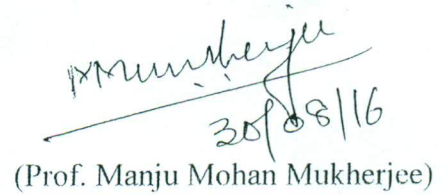 MMukherjee
30/08/16
(Prof. Manju Mohan Mukherjee)